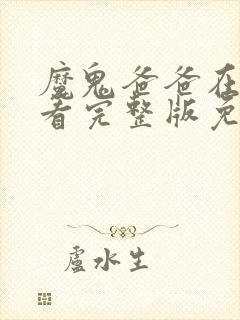 魔鬼爸爸在
看完整版免
盧水生